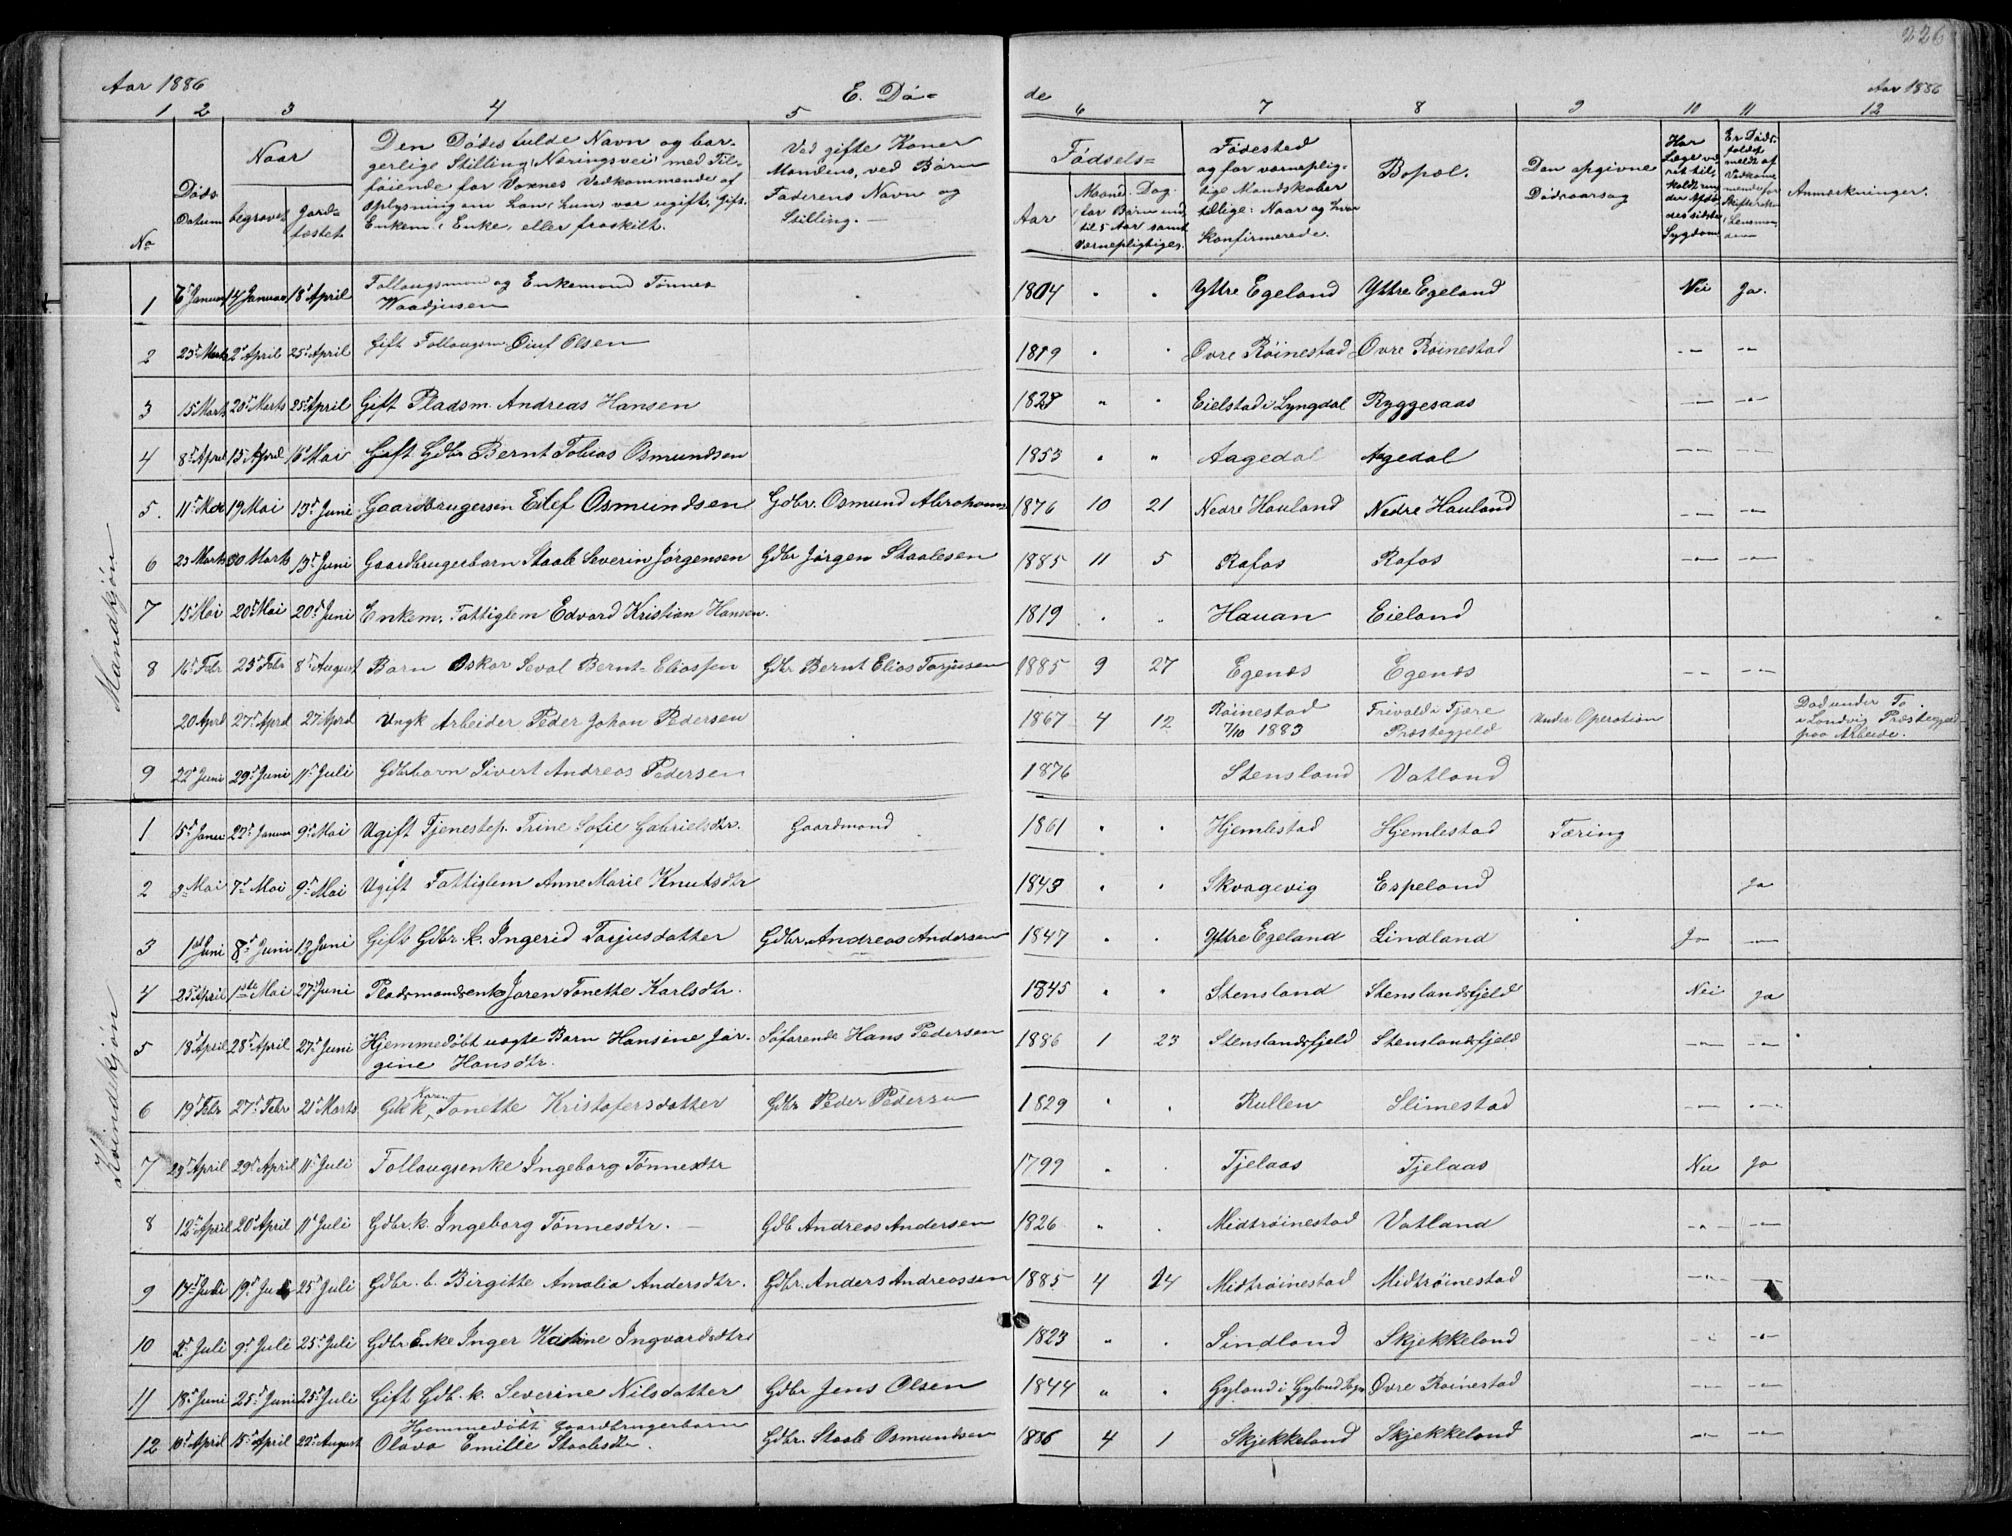 226
Aar 1886
E. Dö-
de
Aar 1886
1 2 3 4 5 6 7 8 9 10 11 12
No
Döds Datum
Naar
begravet
Jord-fæstet
Den Dödes fulde Navn og bor-
gerlige Stilling (Næringsvei) med Til-
föiende for Voxnes Vedkommende af
Oplysning om han (hun) var ugift, Gift,
Enkem., Enke, eller fraskilt.
Ved gifte Koner
Mandens, ved Börn
Faderens Navn og
Stilling.
Födsels-
Aar
Maaned. Dag.
for Börn ind
til 5 Aar samt
Værnepligtige.
Födested
og for værneplig-
tige Mandskaber
tillige: Naar og hvor
Konfirmerede.
Bopæl.
Den opgivne
Dödsaarsag
Har Læge væ-
ret til-
kaldt un-
der Afdö-
des sidste
Sygdom
Er Döds-
faldet
meldt af
Vedkom-
mende for
Skifteretten
Lensman-
den
Anmærkninger.
Mandkjön
1 6t Januar 14 Januar 18t April Follaugsmand og Enkemand Tönnes Waadjesen 1804 " " Yttre Egeland Yttre Egeland Nei Ja.
2 23t Marts 2t April 25t April Gift Follaugsm. Oluf Olsen 1819 " " Övre Röinestad Övre Röinestad — —
3 15 Marts 20t Marts 25t April Gift Pladsm. Andreas Hansen 1828 " " Eielstad i Lyngdal Ryggesaas — —
4 8t April 15 April 16t Mai Gift Gdbr Bernt Tobias Osmundsen 1853 " " Aagedal Aagedal — —
5. 11t Mai 19 Mai 13t Juni Gaardbrugersön Eilef Osmundsen Gdbr. Osmund Abrahams 1876 10 21 Nedre Hauland Nedre Hauland — —
6 23 Marts 30 Marts 13t Juni Gaardbrugerbarn Staale Severin Jörgensen Gdbr Jörgen Staalesen 1885 11 5 Rafos Rafos — —
7 15 Mai 20t Mai 20t Juni Enkem. Fattiglem Edvard Kristian Hansen. 1819 " " Hauan Eieland
8 16t Febr 25t Febr 8t August Barn Oskar Seval Bernt-Eliassen Gdbr Bernt Elias Torjusen 1885 9 27 Egenæs Egenæs — —
20 April 27t April 27 April Ungk Arbeider Peder Johan Pedersen 1867 4 12 Röinestad 7/10 1883 Frivold i Fjære Præstegjeld Under Operation Död under
i Landvig Præstegjeld
paa Arbeide.
9 22t Juni 29t Juni 11t Juli Gdbrbarn Sivert Andreas Pedersen 1876 Stensland Vatland
Kvindekjön
1 15t Januar 22t Januar 9t Mai Ugift Tjenestep. Trine Sofie Gabrielsdtr. Gaardmand 1861 " " Hjemlestad Hjemlestad Tæring
2 3t Mai 7t Mai 9t Mai Ugift Fattiglem Anne Marie Knutsdtr 1843 " " Skvagevig Espeland Ja
3 1st Juni 8t Juni 13 Juni Gift Gdbr. k. Ingerid Torjusdatter Gdbr. Andreas Andersen 1847 " " Yttre Egeland Lindland Ja —
4 25t April 1ste Mai 27t Juni Pladsmandsenke Joren Tonette Karlsdtr. 1845 " " Stensland Stenslandsfjeld Nei Ja
5 18t April 28t April 27t Juni Hjemmedöbt uægte Barn Hansine Jör-
gine Hansdtr. Söfarende Hans Pedersen 1886 1 23 Stenslandsfjeld Stenslandsfjeld — —
6 19t Febr 27t Febr 21t Marts Gdbr k Karen Tonette Kristofersdatter Gdbr Peder Pedersen 1829 " " Rullen Slimestad — —
7 23t April 29t April 11t Juli Follaugsenke Ingeborg Tönnesdtr 1799 " " Tjelaas Tjelaas Nei Ja
8 12t April 20t April 11t Juli Gdbr. k. Ingeborg Tönnesdtr. Gdb Andreas Andersen 1826 " " Midtröinestad Vatland — —
9 14t Juli 19t Juli 25t Juli Gdbr. b. Birgitte Amalia Andersdtr. Gdbr. Anders Andreassen 1885 4 14 Midtröinestad Midtröinestad — —
10 2t Juli 9t Juli 25t Juli Gdbr Enke Inger Katrine Ingvardsdtr 1823 " " Lindland Skjekkeland — —
11 18t Juni 25t Juni 25t Juli Gift Gdb. k. Severine Nilsdatter Gdbr Jens Olsen 1844 " " Gyland i Gyland Sogn Övre Röinestad — —
12 10t April 15t April 22t August Hjemmedöbt Gaardbrugerbarn
Olava Emilie Staalesdtr. Gdbr. Staale Osmundsen 1886 4 1 Skjekkeland Skjekkeland — —